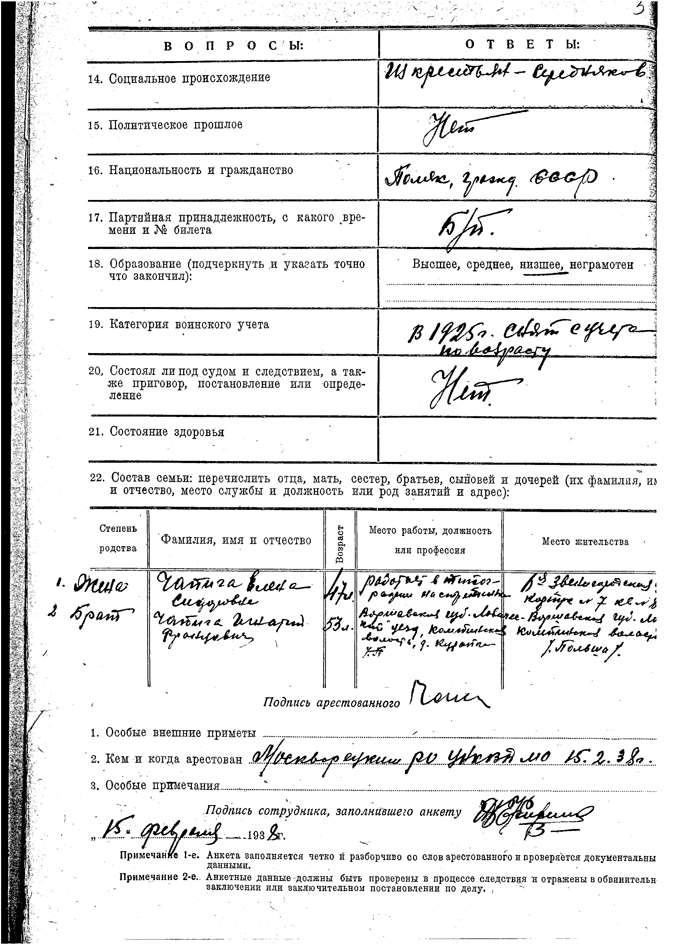 3
ВОПРОСЫ: ОТВЕТЫ:
14. Социальное происхождение Из крестьян – Середняков
15. Политическое прошлое Нет
16. Национальность и гражданство Поляк, гражд. СССР.
17. Партийная принадлежность, с какого вре-
мени и № билета Б/п.
18. Образование (подчеркнуть и указать точно Высшее, среднее, низшее, неграмотен
что закончил):
19. Категория воинского учета В 1925 г. снят с учета
по возрасту
20. Состоял ли под судом и следствием, а так-
же приговор, постановление или опреде-
ление Нет.
21. Состояние здоровья
22. Состав семьи: перечислить отца, мать, сестер, братьев, сыновей и дочерей (их фамилия, им
и отчество, место службы и должность или род занятий и адрес):
Степень
родства
Фамилия, имя и отчество
Возраст
Место работы, должность
или профессия
Место жительства
1. Жена Чапига Елена
Сидоровна
47 л.
работает в типо-
графии
корпус № 7 кв. №
2 Брат Чапига
Францевич
53 л.
Варшавская губ.
уезд,
волость, д.
Варшавская губ.
/Польша/.
Подпись арестованного
1. Особые внешние приметы
2. Кем и когда арестован Москворецким РО УНКВД МО 15.2.38 г.
3. Особые примечания
Подпись сотрудника, заполнившего анкету
„15. февраля 1938 г.
Примечание 1-е. Анкета заполняется четко и разборчиво со слов арестованного и проверяется документальны
данными.
Примечание 2-е. Анкетные данные должны быть проверены в процессе следствия и отражены в обвинительн
заключении или заключительном постановлении по делу.